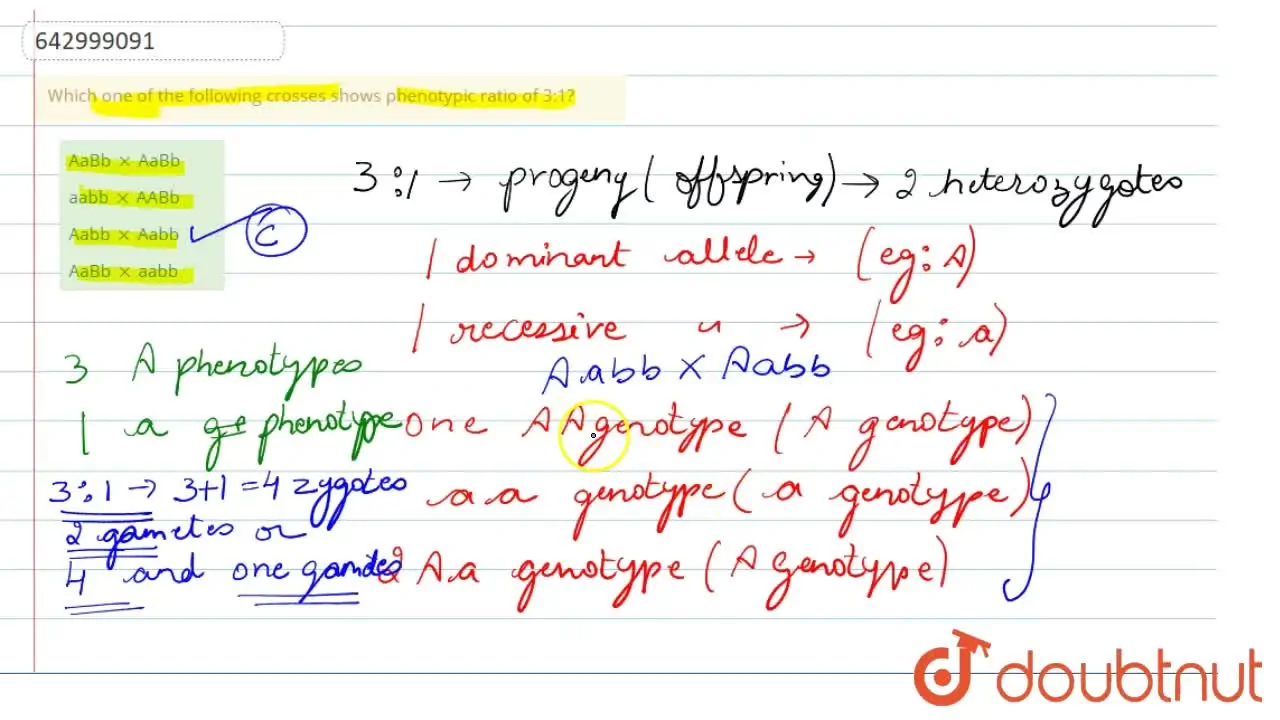 642999091
Which one of the following crosses shows phenotypic ratio of 3:1?
AaBb × AaBb
aabb × AABb
Aabb × Aabb
AaBb × aabb
C
3:1 → progeny (offspring) → 2 heterozygotes
1 dominant allele → (eg: A)
1 recessive " → (eg: a)
Aabb × Aabb
3 A phenotypes
1 a ge phenotype
one AA genotype (A genotype)
aa genotype (a genotype)
2 Aa genotype (A genotype)
4
3:1 → 3+1 = 4 zygotes
2 gametes or
4 and one gametes
doubtnut